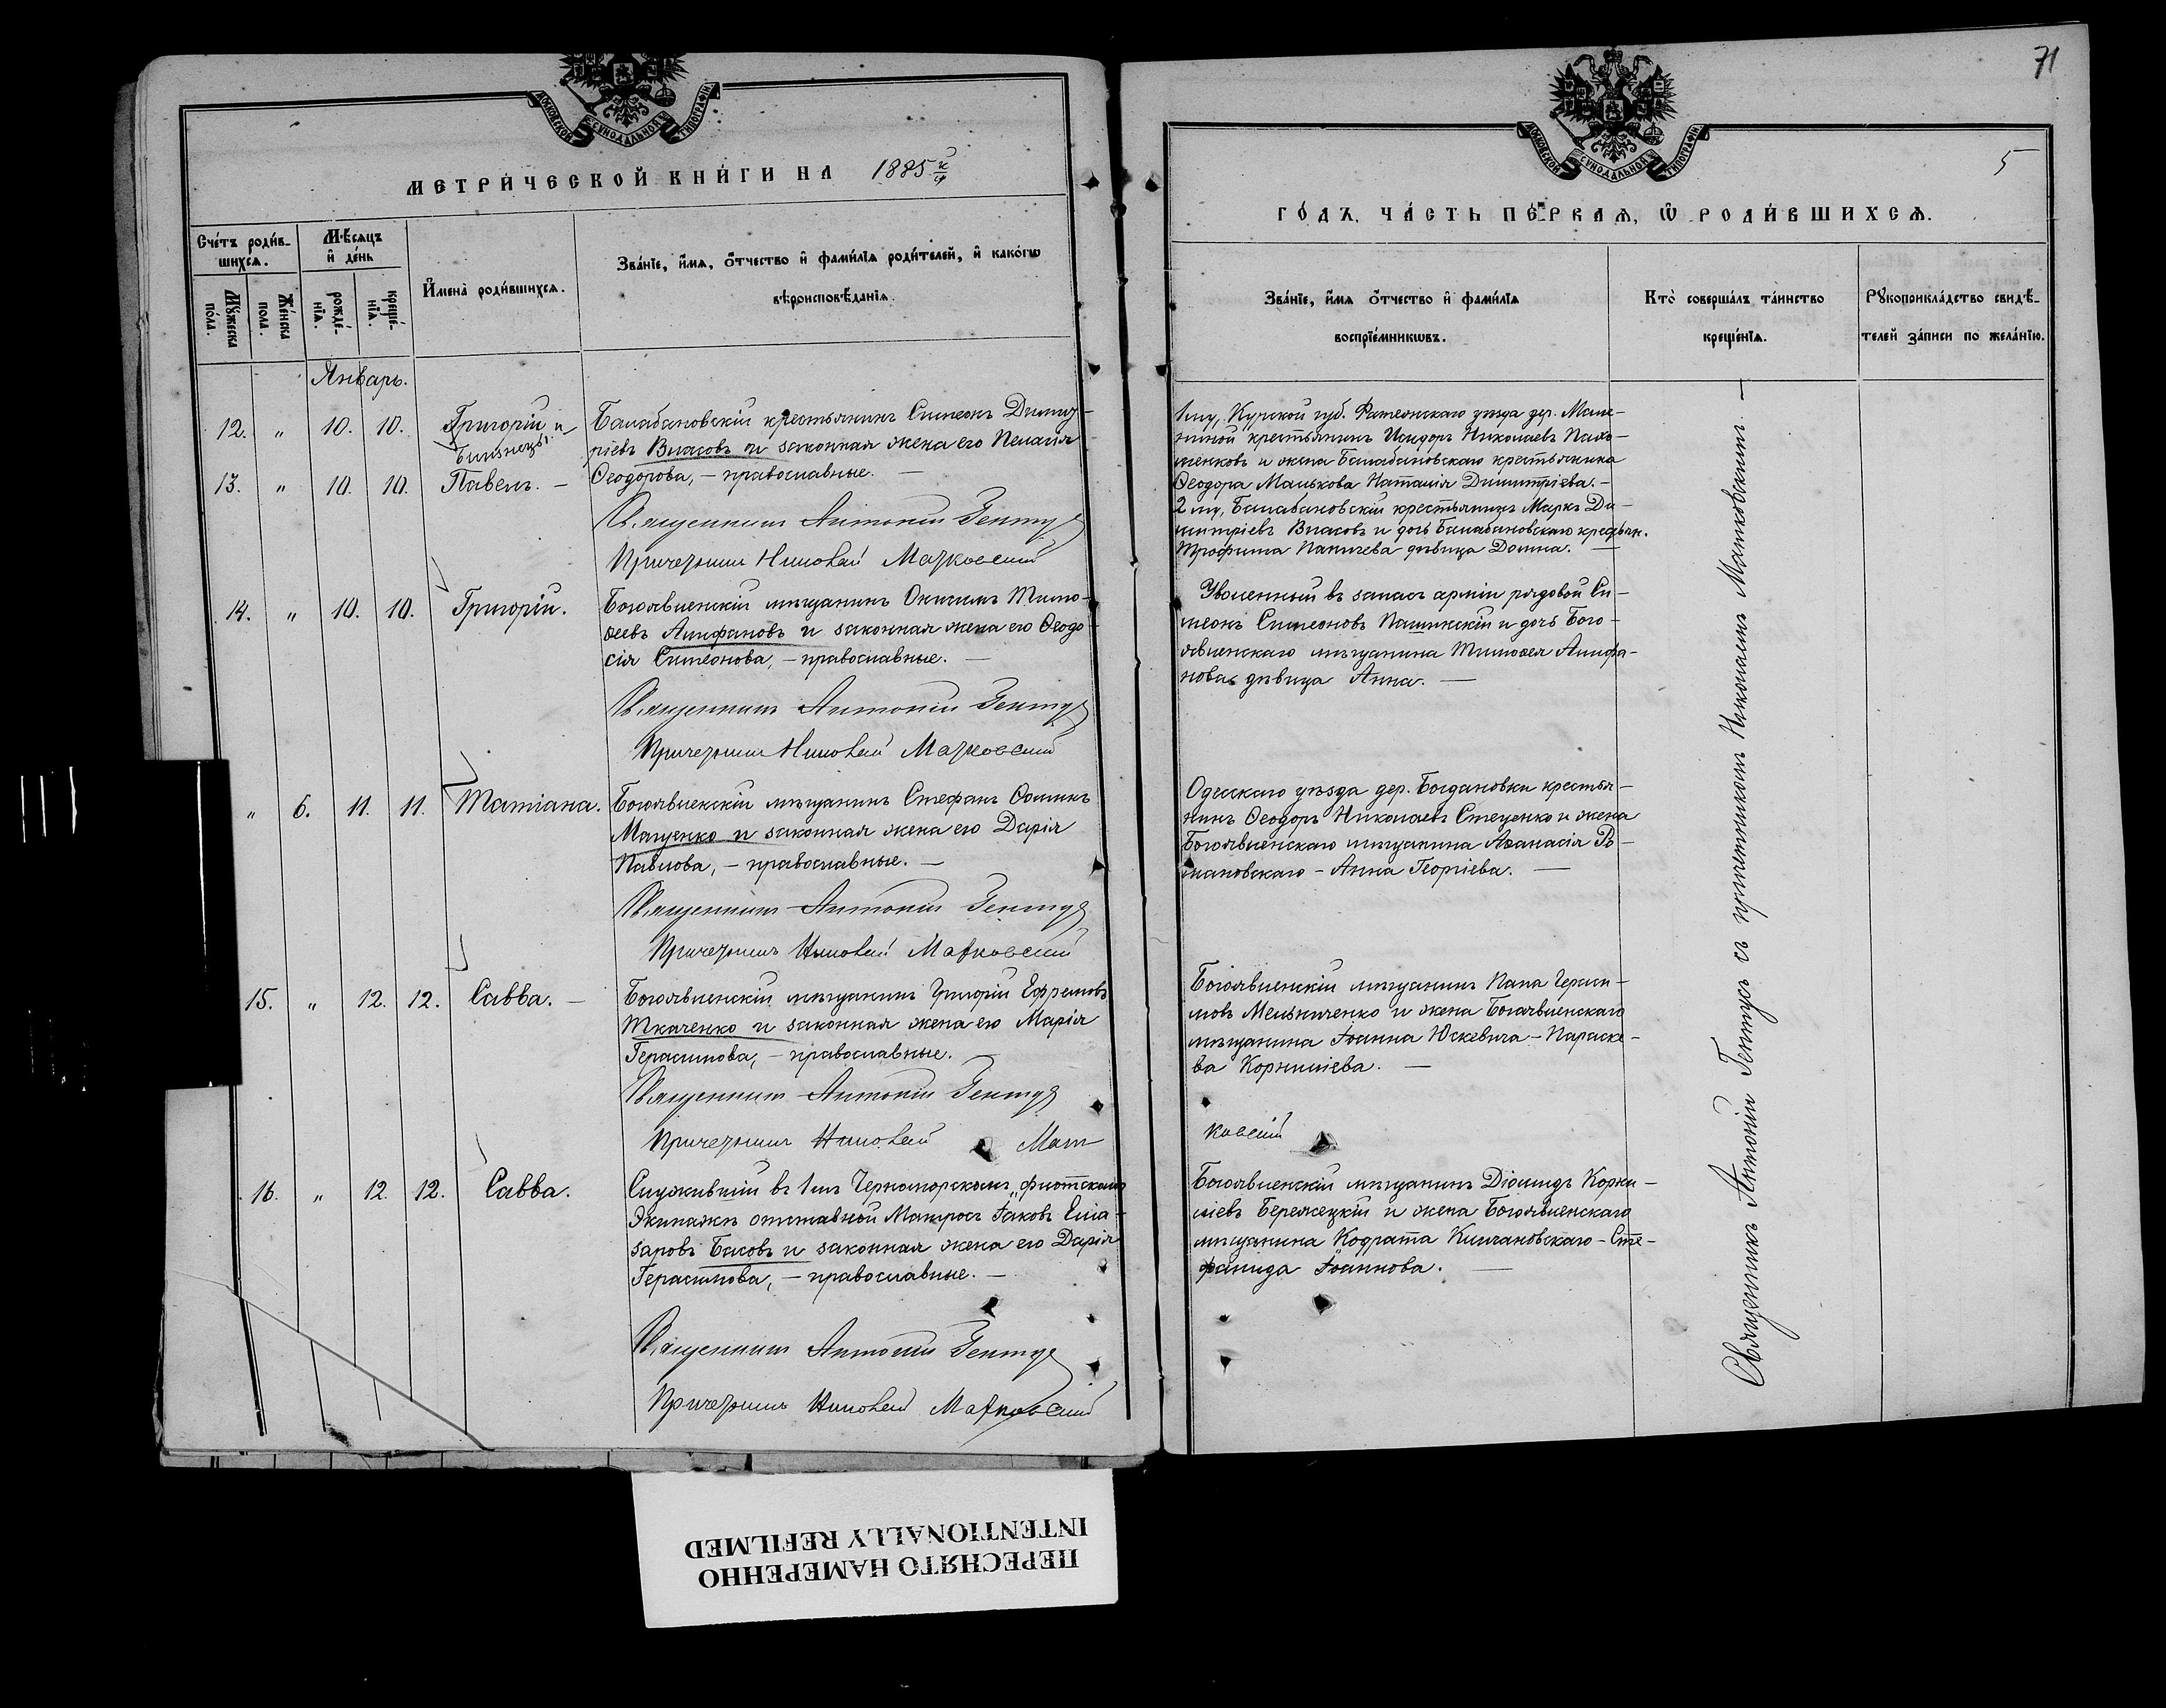 МОСКОВСКОЙ СУНОДАЛЬНОЙ ТИПОГРАФІИ
МЕТРИ́ЧЕСКОЙ КНИ́ГИ НА 1885 й
Сче́тъ роди́в-
шихся.
Мѣсяцъ
и̂ де́нь
Мꙋ́жеска
по́ла.
Же́нска
пола.
рожде́-
нїѧ.
креще́-
нїѧ.
И̂мена̀ роди́вшихсѧ.
Зва́нїе, и̂мѧ, ѻ̂тчество и̂ фами́лїѧ роди́телей, и̂ како́гѡ
вѣроисповѣ́данїѧ.
Январь.
12. " 10. 10. Григорій и
Близнецы
13. " 10. 10. Павелъ. —
Балабановскій крестьянинъ Симеонъ Димит-
ріевъ Власовъ и законная жена его Пелагія
Ѳеодорова, — православные. —
Священникъ Антоній Гентусъ
Причетникъ Николай Матковскій
14. " 10. 10. Григорій.
Богоявленскій мѣщанинъ Онисимъ Тимо-
ѳеевъ Анифановъ и законная жена его Ѳеодо-
сія Симеонова, — православные. —
Священникъ Антоній Гентусъ
Причетникъ Николай Матковскій
" 6. 11. 11. Татіана.
Богоявленскій мѣщанинъ Стефанъ Ѳоминъ
Маценко и законная жена его Дарія
Павлова, — православные. —
Священникъ Антоній Гентусъ
Причетникъ Николай Матковскій
15. " 12. 12. Савва. —
Богоявленскій мѣщанинъ Григорій Ефремовъ
Ткаченко и законная жена его Марія
Герасимова, — православные. —
Священникъ Антоній Гентусъ
Причетникъ Николай Мат
16. " 12. 12. Савва.
Служившій въ 1мъ Черноморскомъ флотскомъ
Экипажѣ отставной Матросъ Іаковъ Елеа-
заровъ Басовъ и законная жена его Дарія
Герасимова, — православные. —
Священникъ Антоній Гентусъ
Причетникъ Николай Матковскій
71
МОСКОВСКОЙ СУНОДАЛЬНОЙ ТИПОГРАФІИ
5
ГО́ДЪ, ЧА́СТЬ ПЕ́РВАѦ, Ѽ РОДИ́ВШИХСѦ.
Зва́нїе, и̂мѧ ѻ̂тчество и̂ фами́лїѧ
воспрїе́мникѡвъ.
Кто̀ соверша́лъ та́инство
креще́нїѧ.
Рꙋкоприкла́дство свидѣ́-
телей за́писи по жела́нїю.
1му, Курской губ. Фатежскаго уѣзда дер.
крестьянинъ Исидоръ Николаевъ Пахо-
менковъ и жена Балабановскаго крестьянина
Ѳеодора Манькова Наталія Димитріева. —
2му, Балабановскій крестьянинъ Маркъ Ди-
митріевъ Власовъ и дочь Балабановскаго крестьян.
Трофима Паничева дѣвица Домна. —
Уволенный въ запасъ арміи рядовой Си-
меонъ Симеоновъ и дочь Бого-
явленскаго мѣщанина Тимоѳея Анифа-
нова дѣвица Анна. —
Одесскаго уѣзда дер. Богдановки крестья-
нинъ Ѳеодоръ Николаевъ Стеценко и жена
Богоявленскаго мѣщанина Аѳанасія Ро-
мановскаго — Анна Георгіева. —
Богоявленскій мѣщанинъ Папа Гераси-
мовъ Мельниченко и жена Богоявленскаго
мѣщанина Іоанна Юскевича — Параске-
ва Корниліева. —
ковскій
Богоявленскій мѣщанинъ Діомидъ Корни-
ліевъ Бережецкій и жена Богоявленскаго
мѣщанина Кодрата Килчановскаго — Сте-
фанида Іоаннова. —
Священникъ Антоній Гентусъ съ причетникомъ Николаемъ Матковскимъ. —
ПЕРЕСНЯТО НАМЕРЕННО
INTENTIONALLY REFILMED